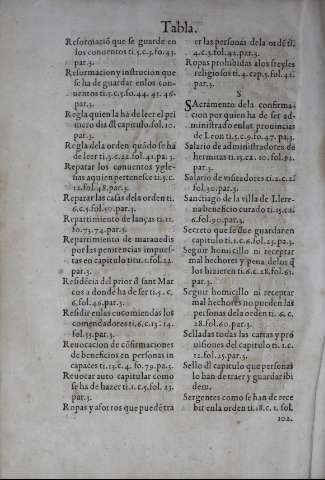 Tabla.
Reformació que se guarde en
los conuentos ti.5.c.5.fo.43.
par.3.
Reformacion y instrucion que
se ha de guardar en los con-
uentos ti.5.c.5.fo.44.45.46.
par.3.
Regla quien la ha de leer el pri
mero dia đl capitulo.fol.10.
par.3.
Regla dela orden quãdo se ha
de leer ti.5.c.22.fol.41.pa.3.
Reparar los conuentos y gle-
sias a quien pertenesce ti.5.c.
12.fol.48.par.3.
Reparar las casas dela orden ti.
6.c.5.fol.50.par.3.
Repartimiento de lanças ti.11.
fo.73.74.par.3.
Repartimiento de marauedis
por las penitencias impues-
tas en capitulo titu.1.fol.22.
par.3.
Residécia del prior đ sant Mar
cos a donde ha de ser ti.5.c.
6.fol.46.par.3.
Residir en las encomiendas los
comendadores ti.6.c.13.14.
fol.55.par.3.
Reuocacion de cõfirmaciones
de beneficios en personas in
capaces ti.13.c.4.fo.79.pa.3.
Reuocar auto capitular como
se ha de hazer ti.1.c.5.fol.23.
par.3.
Ropas y aforros que puedé tra
er las personas dela ordé ti.
4.c.3.fol.42.par.3.
Ropas prohibidas alos freyles
religiosos ti.4.cap.5.fol.42.
par.3.
S
SAcramento dela confirma-
cion por quien ha de ser ad-
ministrado en los prouincias
de Leon ti.5.c.9.fo.47.pa.3.
Salario de administradores de
hermitas ti.15.ca.10.fol.92.
par.3.
Salario de visitadores ti.2.c.12
fol.30.par.3.
Sanctiago de la villa de Llere-
na beneficio curado ti.15.ca.
6.fol.90.par.3.
Secreto que se deue guardar en
capitulo ti.1.c.6.fol.23.pa.3.
Seguir homicillo ni receptar
mal hechores y pena delos q̃
los hizieren ti.6.c.28.fol.61.
par.3.
Seguir homicillo ni receptar
mal hechores no pueden las
personas dela orden ti.6.c.
28.fol.60.par.3.
Selladas todas las cartas y pro
uisiones del capitulo ti.1.c.
12.fol.25.par.3.
Sello đl capitulo que personas
lo han de traer y guardar ibi
dem.
Sergentes como se han de rece
bir en la orden ti.18.c.1.fol.
102.